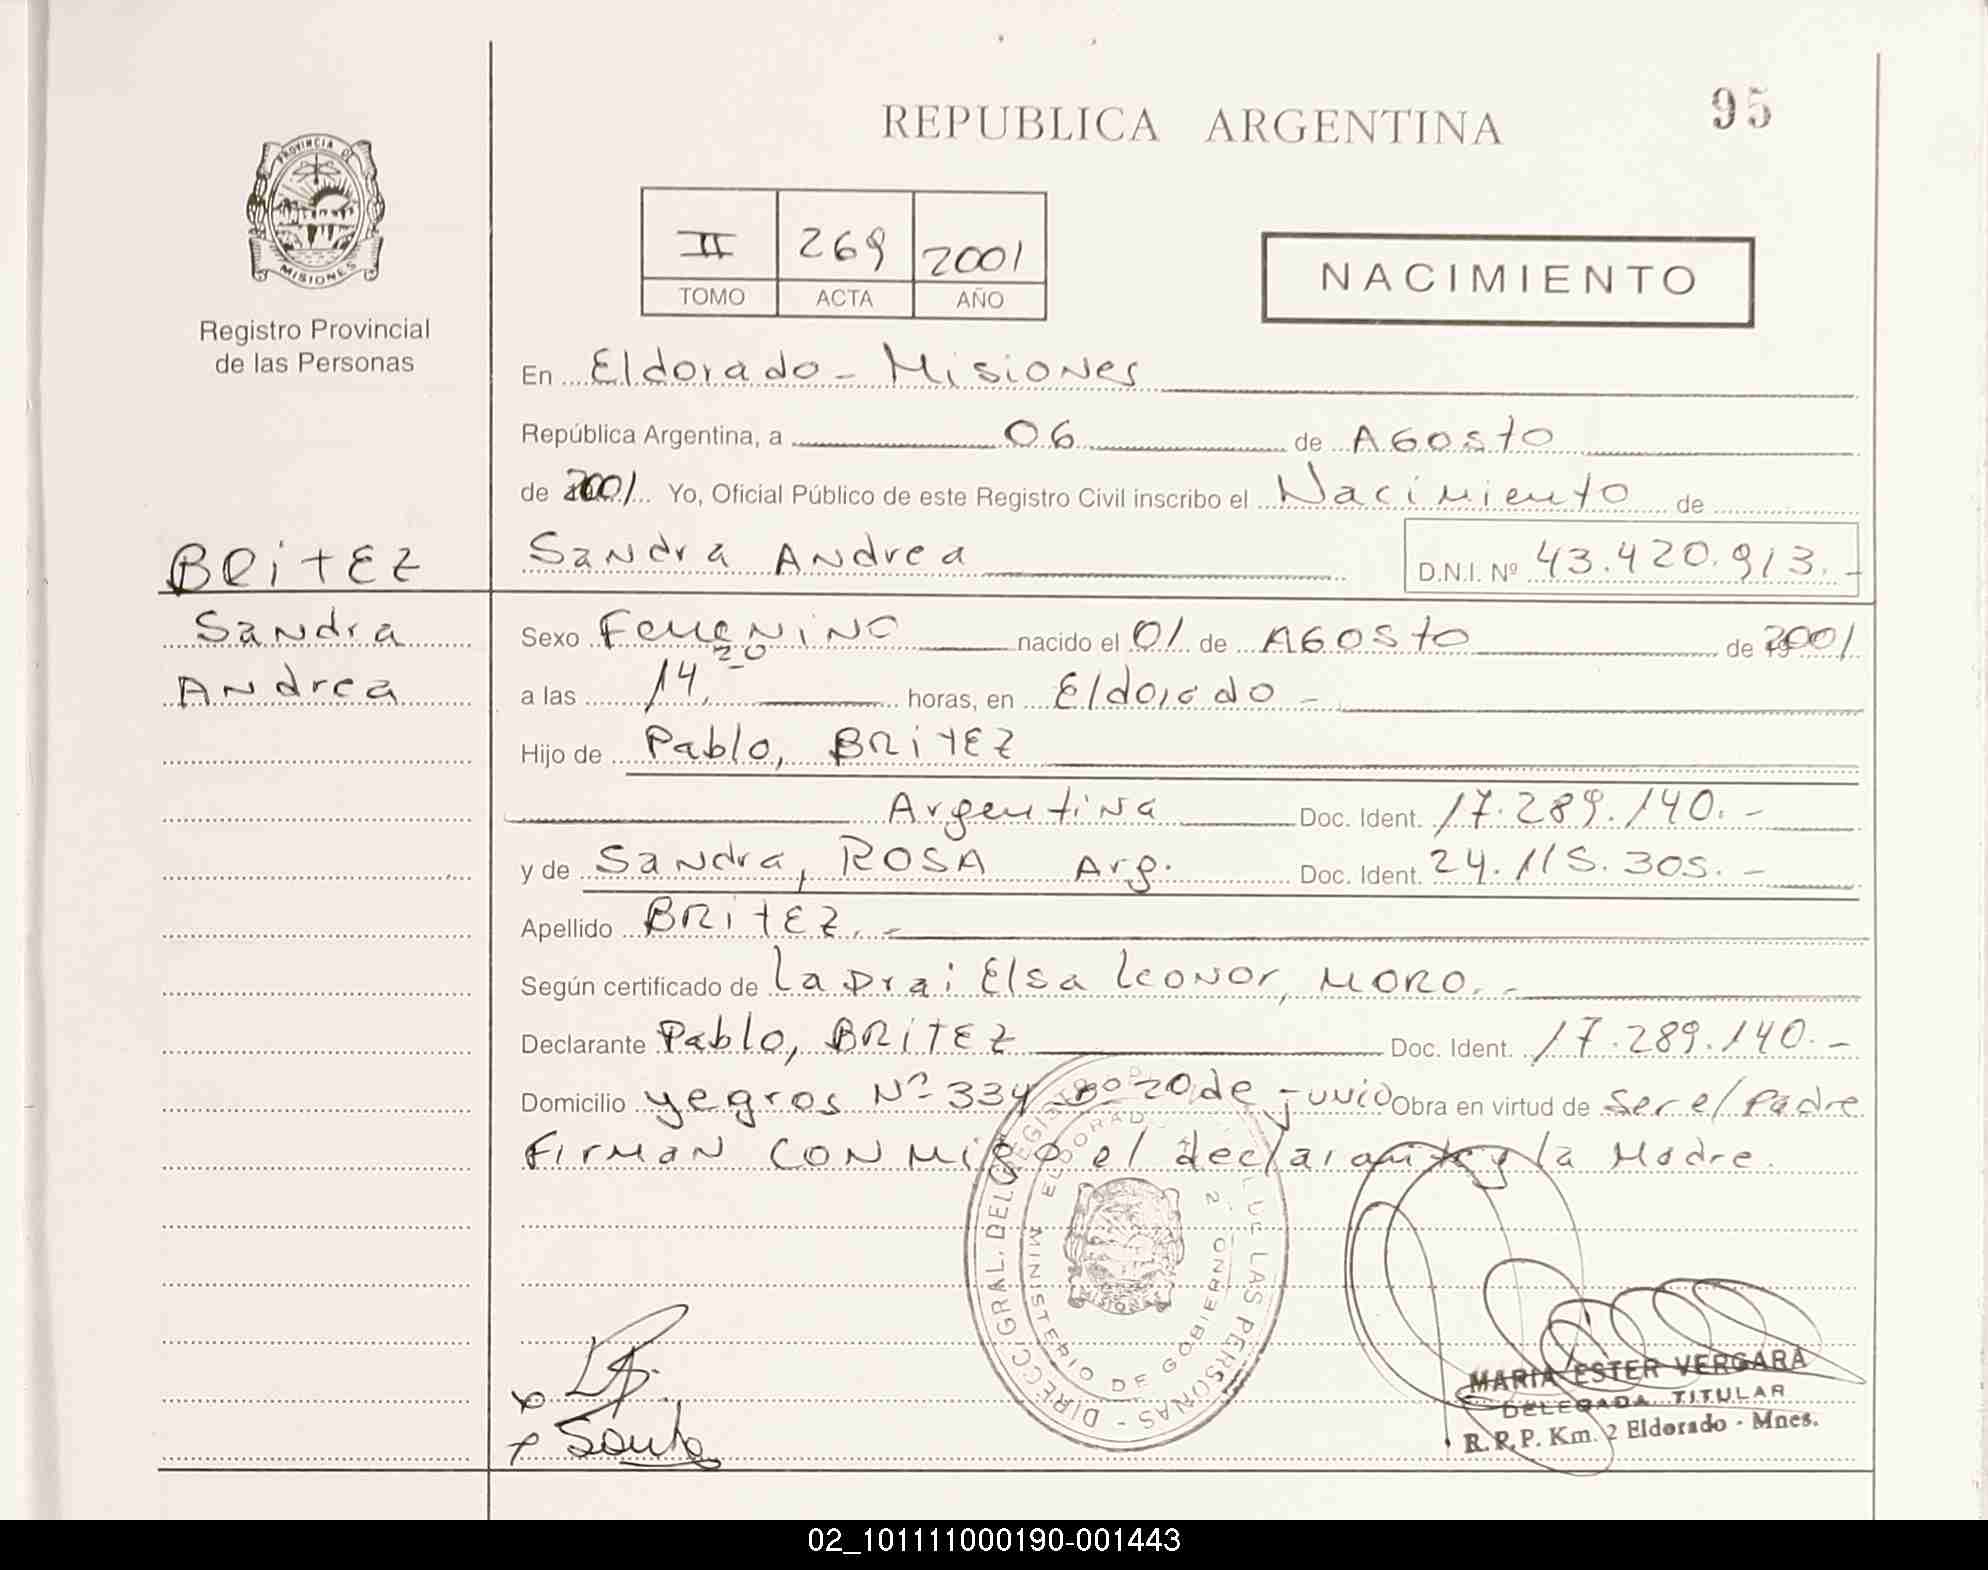 REPUBLICA ARGENTINA
95
PROVINCIA DE
MISIONES
Registro Provincial
de las Personas
II 269 2001
TOMO ACTA AÑO
NACIMIENTO
En Eldorado - Misiones
República Argentina, a 06 de Agosto
de 2001 Yo, Oficial Público de este Registro Civil inscribo el Nacimiento de
BRITEZ
Sandra Andrea D.N.I. Nº 43.420.913.-
Sandra
Andrea
Sexo Femenino nacido el 01 de Agosto de 2001
a las 14,20 horas, en Eldorado -
Hijo de Pablo, BRITEZ
Argentina Doc. Ident. 17.289.140.-
y de Sandra, ROSA Arg. Doc. Ident. 24.115.305.-
Apellido BRITEZ.-
Según certificado de La Dra: Elsa Leonor, MORO.-
Declarante Pablo, BRITEZ Doc. Ident. 17.289.140.-
Domicilio yegros Nº 334 Bº 20 de junio Obra en virtud de Ser el Padre
Firman conmigo el declarante y la Madre.
DIRECC. GRAL. DEL REGISTRO DE LAS PERSONAS
MINISTERIO DE GOBIERNO
ELDORADO 2
MISIONES
MARIA ESTER VERGARA
DELEGADA TITULAR
R.P.P. Km. 2 Eldorado - Mnes.
02_101111000190-001443